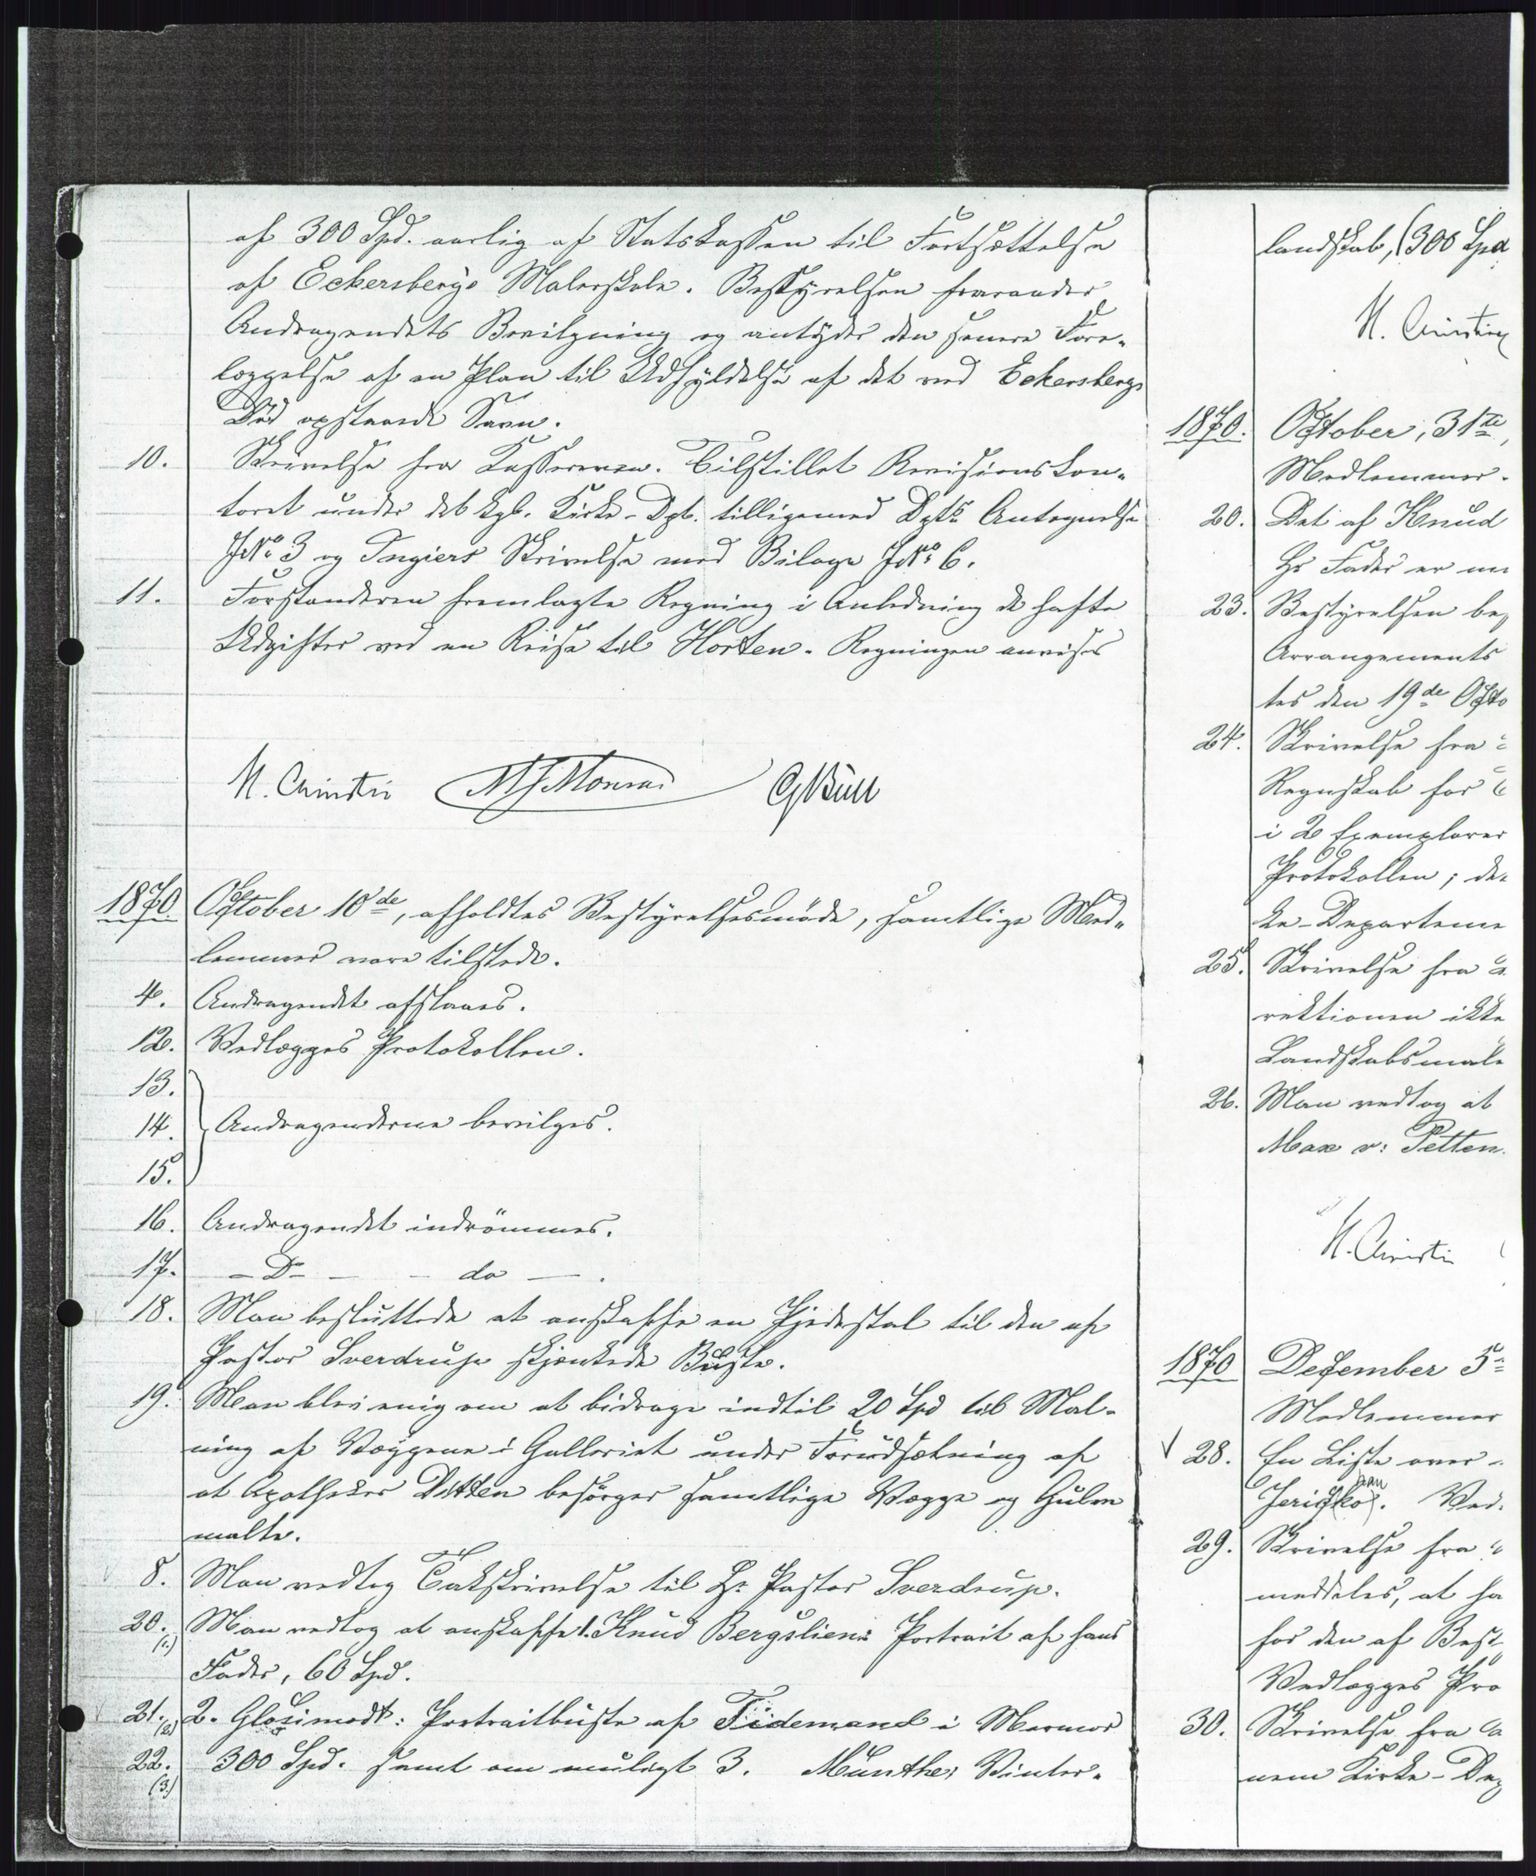 af 300 Spd. aarlig af Statskassen til Fortsættelse
af Eckersbergs Malerskole. Bestyrelsen
Andragendets Bevilgning og antyder den senere Fore-
læggelse af en Plan til Udfyldelse af det ved Eckersbergs
Död opstaaede Savn.
10. Skrivelse fra Kassereren. Tilstillet Revisionskon-
toret under det kgl. Kirke-Dpt. tilligemed Dpts Antegnelse
JNo 3 og Ingiers Skrivelse med Bilage JNo 6.
11. Forstanderen fremlagte Regning i Anledning de hafte
Udgifter ved en Reise til Horten. Regningen anvises
H. Christie MJMonrad GBull
1870 October 10de, afholdtes Bestyrelsesmöde, samtlige Med-
lemmer vare tilstede.
4. Andragendet afslaaes.
12. Vedlægges Protokollen.
13.
14. Andragenderne bevilges.
15.
16. Andragendet indrömmes.
17. – Do – – do – .
18. Man besluttede at anskaffe en Pjedestal til den af
Pastor Sverdrup skjænkede Büste.
19. Man blev enig om at bidrage indtil 20 Spd til Mal-
ning af Væggene i Galleriet under Forudsætning af
at Apotheker Ditten besörger samtlige Vægge og Gulve
malte.
8. Man vedtog Takskrivelse til Hr Pastor Sverdrup.
20. (1.) Man vedtog at anskaffe 1. Knud Bergsliens Portrait af hans
Fader, 60 Spd.
21. (2.) 2. Glosimodt: Portraitbüste af Tidemand i Marmor
22. (3.) 300 Spd. samt om muligt 3. Munthes Vinter-
landskab, (300 Spd
H. Christie
1870. October, 31te,
Medlemmer.
20. Det af Knud
Hs Fader er
23. Bestyrelsen be
Arrangements
tes den 19de Octo
24. Skrivelse fra
Regnskab for
i 2 Exemplarer
Protokollen; de
ke-Departeme
25. Skrivelse fra
rektionen ikke
Landskabsmale
26. Man vedtog at
Max v: Petten
H. Christie
1870 December 5
Medlemmer
28. En Liste over
Jerichau. Ved
29. Skrivelse fra
meddeles, at ha
for den af Best
Vedlægges Pro
30. Skrivelse fra
nem Kirke-Dep